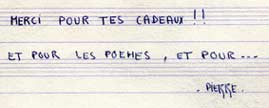 MERCI POUR TES CADEAUX !!
ET POUR LES POEMES, ET POUR ...
. PIERRE.